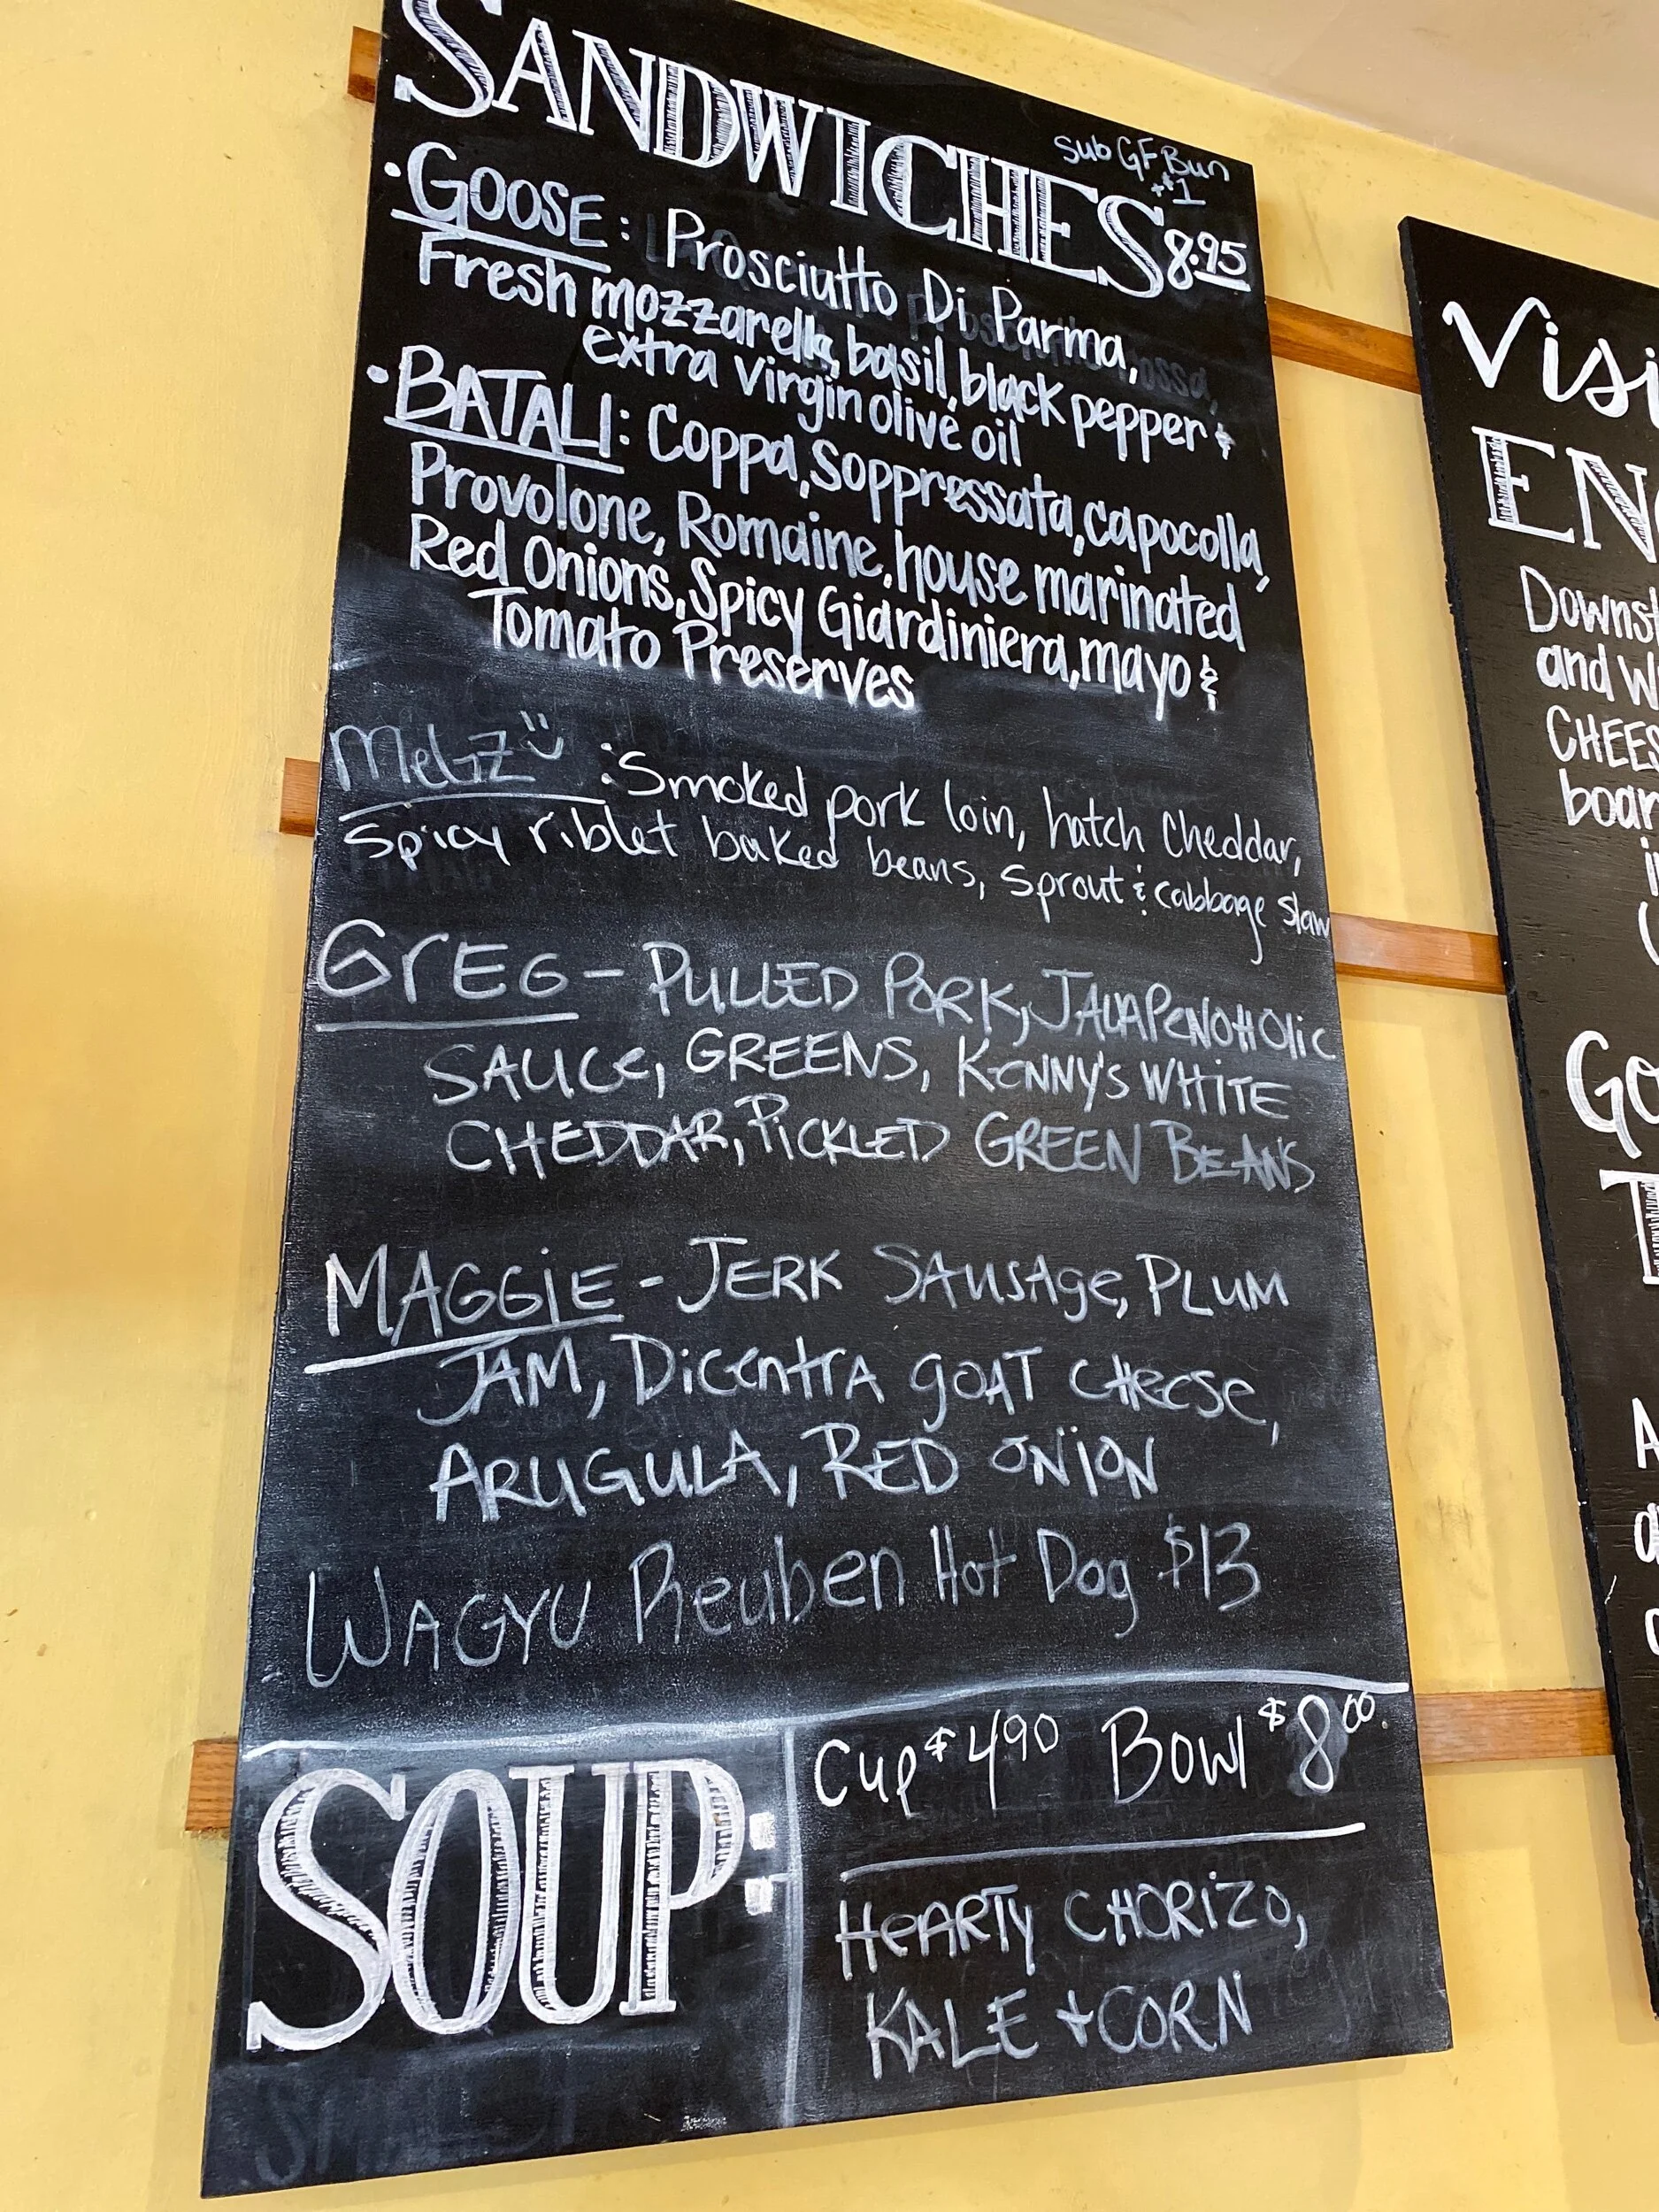 SANDWICHES
Sub GF Bun
+$1
8.95
• GOOSE: Prosciutto Di Parma,
Fresh mozzarella, basil, black pepper &
extra virgin olive oil
• BATALI: Coppa, Soppressata, capocolla,
Provolone, Romaine, house marinated
Red Onions, Spicy Giardiniera, mayo &
Tomato Preserves
:Smoked pork loin, hatch cheddar,
Spicy riblet baked beans, sprout & cabbage slaw
GrEG - PULLED PORK, JALAPeNOHOlic
SAUCe, GREENS, KeNNY's WHiTE
CHEDDAR, PiCKLED GREEN BEANS
MAGGiE - JERK SAusAge, PLUM
JAM, DiceNtrA gOAT CHeese,
ARUGULA, RED ONiON
WAGYU Reuben Hot Dog $13
SOUP:
Cup $4.90 Bowl $8.00
HeARTy CHORiZO,
KALE + CORN
Visi
EN
Downst
and W
CHEES
boar
Go
T
A